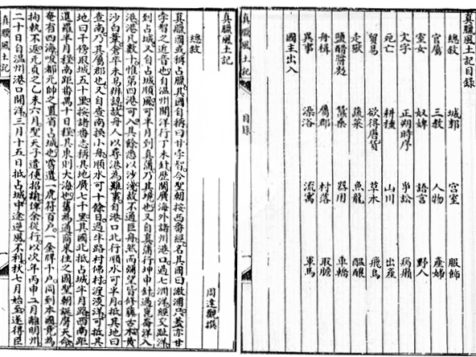 真臘風土記目錄
總敘 城郭 宮室 服飾
官屬 三教 人物 產婦
室女 奴婢 語言 野人
文字 正朔時序 爭訟 病癩
死亡 耕種 山川 出產
貿易 欲得唐貨 草木 飛鳥
走獸 蔬菜 魚龍 醞釀
鹽醋醬麪 蠶桑 器用 車轎
舟楫 屬郡 村落 取膽
異事 澡浴 流寓 軍馬
國主出入
真臘風土記 目錄
真臘風土記
周達觀撰
總敘
真臘國或稱占臘其國自稱曰甘孛智今聖朝按西番經名其國曰澉浦只盖亦甘
孛智之近音也自温州開洋行丁未針歷閩廣海外諸州港口過七洲洋經交趾洋
到占城又自占城順風可半月到真蒲乃其境也又自真蒲行坤申針過崑崙洋入
港港凡數十惟第四港可入其餘悉以沙淺故不通巨舟然而彌望皆修藤古木黄
沙白葦倉卒未易辨認故舟人以尋港為難事自港口北行順水可半月抵其地曰
查南乃其屬郡也又自查南換小舟順水可十餘日過半路村佛村渡淡洋可抵其
地曰干傍取城五十里按諸番志稱其地廣七千里其國北抵占城半月路西南距
暹羅半月程南距番禺十日程其東則大海也舊為通商來往之國聖朝誕膺天命
奄有四海唆都元帥之置省占城也嘗遣一虎符百戶一金牌千戶同到本國竟為
拘執不返元貞之乙未六月聖天子遣使招諭俾余從行以次年丙申二月離明州
二十日自温州港口開洋三月十五日抵占城中途逆風不利秋七月始至遂得臣
真臘風土記